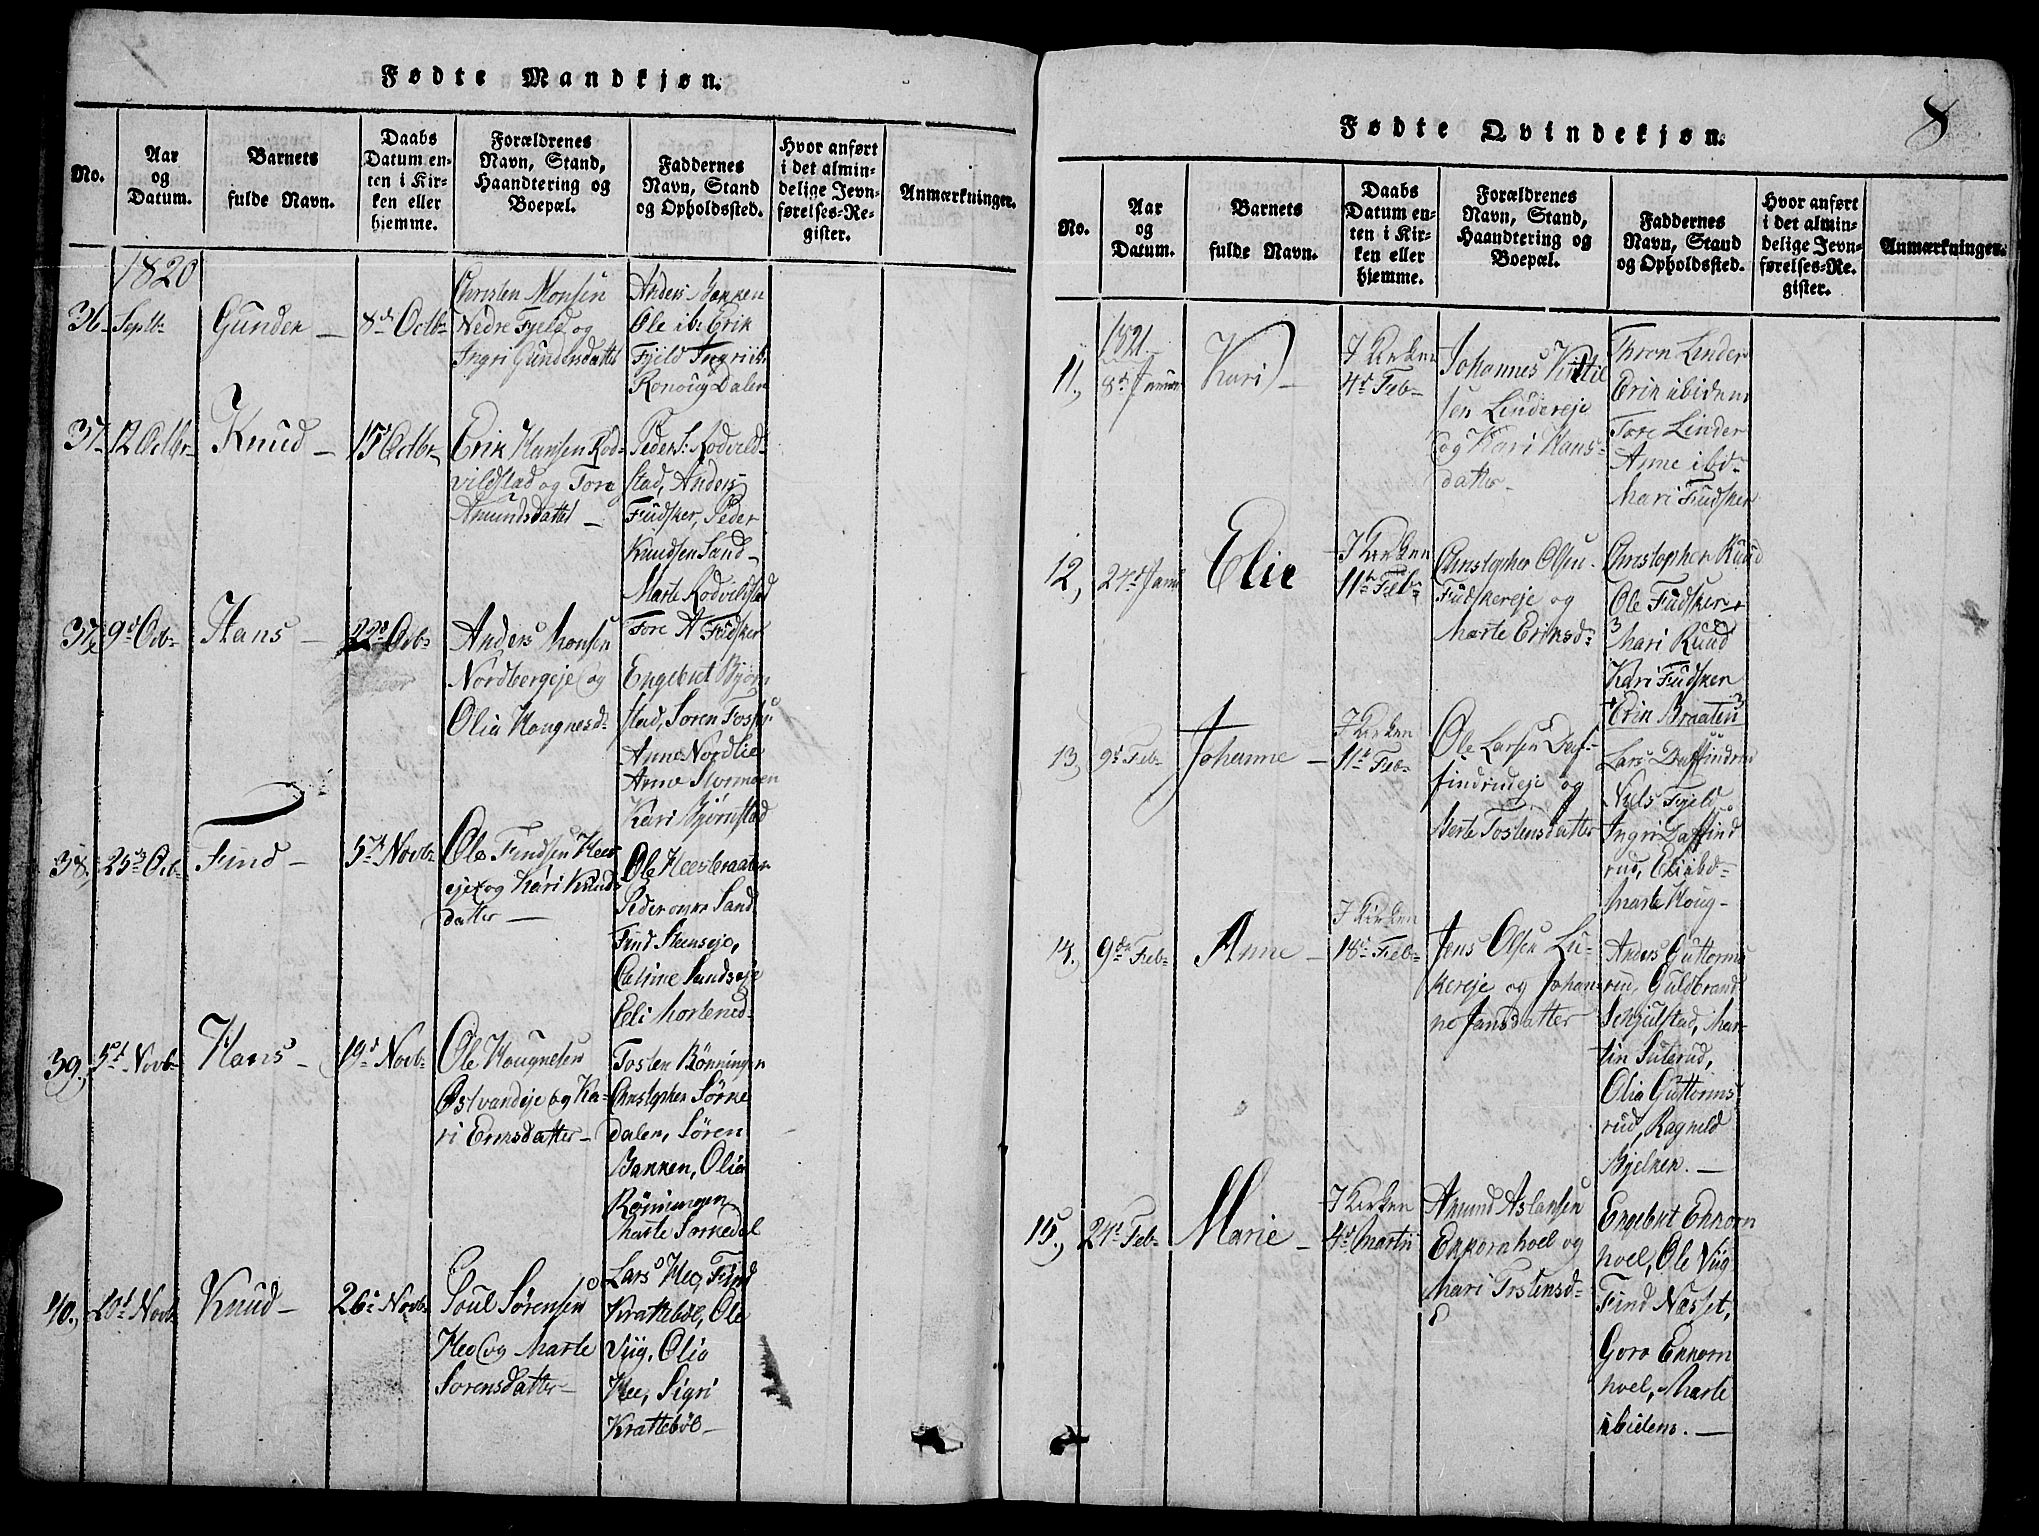 Fødte Mandkjøn.
No.
Aar
og
Datum.
Barnets
fulde Navn.
Daabs
Datum en-
ten i Kir-
ken eller
hjemme.
Forældrenes
Navn, Stand,
Haandtering og
Boepæl.
Faddernes
Navn, Stand
og Opholdssted.
Hvor anført
i det almin-
delige Jevn-
førelses-Re-
gister.
Anmærkninger.
1820
36
Septb
Gunder
8de Octb
Christen Monsen
Nedre Fjeld og
Ingri Gundersdatter
Anders Bakken
Ole ib: Erik
Fjeld Ingri ib:
Ronoug Dalen
37
12 Octbr
Knud
15 Octbr
Erik Hansen Rod-
vildstad og Tore
Amundsdatter
Peder S: Rodvild-
stad, Anders
Fudsker, Peder
Knudsen Sand
Marte Rodvildstad
Tore A Fudsker
37
9d Ocb
Hans
22de Ocb
Anders Monsen
Nordbergeje og
Olia Haugnesd
Engebret Bjørn
stad, Soren Foss
Anne Nordlie
Anne Stormoen
Kari Bjørnstad
38,
25d Ocb
Find
5te Novb
Ole Findsen Hee
eje og Kari Knuds
datter
Ole Heesbraaten
Peder Sand
Find Steenseje,
Catrine Sandseje
Eeli Mortensd
39,
5d Novb
Hans
19d Novb
Ole Haugnesen
Østvandeje og Ka-
ri Ericsdatter
Tosten Rønningen
Christopher Sørne
dalen, Søren
Bakken, Olia
Rønningen
Marte Sørnedal
40,
20d Novb
Knud
26d Novb
Poul Sørensen
Hee og Marte
Sorensdatter
Lars Hee, Find
Krattebøl, Ole
Viig, Olia
Hee, Sigri
Krattebøl
8
Fødte Qvindekjøn.
No.
Aar
og
Datum.
Barnets
fulde Navn.
Daabs
Datum en-
ten i Kir-
ken eller
hjemme.
Forældrenes
Navn, Stand,
Haandtering og
Boepæl.
Faddernes
Navn, Stand
og Opholdssted.
Hvor anført
i det almin-
delige Jevn-
førelses-Re-
gister.
Anmærkninger.
1821
11,
8d Januar
Kari
I Kirken
4d Feb
Johannes Kittil
sen Lindereje
og Kari Hans-
datter
Thron Linder
Erik ibidem
Tore Linder
Anne ibd
Mari Fudsker
12,
24d Janu
Elie
I Kirken
11te Feb
Christopher Olsen
Fudskereje og
Marte Eriksd
Christopher Ruud
Ole Fudsker
Mari Ruud
Kari Fudsker
Erik Braaten
13,
9d Feb
Johanne
I Kirken
11te Feb
Ole Larsen Daf-
findrudeje og
Berte Tostensdatter
Lars Daffindrud
Niels Fjeld
Ingri Daffind
rud, Eli ibd
Marte Houg
14,
9de Feb
Anne
I Kirken
18d Feb
Jens Olsen Lu-
kereje og Johan-
ne Jansdatter
Anders Guttorms
rud, Guldbrand
Schjulstad, Mar-
tin Suterud,
Olia Guttorms
rud, Ragnild
Bjelken.
15,
24d Feb
Marie
I Kirken
4d Martii
Amund Aslansen
Enkornhoel og
Mari Tostensd
Engebret Enkorn
hoel, Ole Viig
Find Næsset,
Goro Enkorn
hoel, Marte
ibidem.